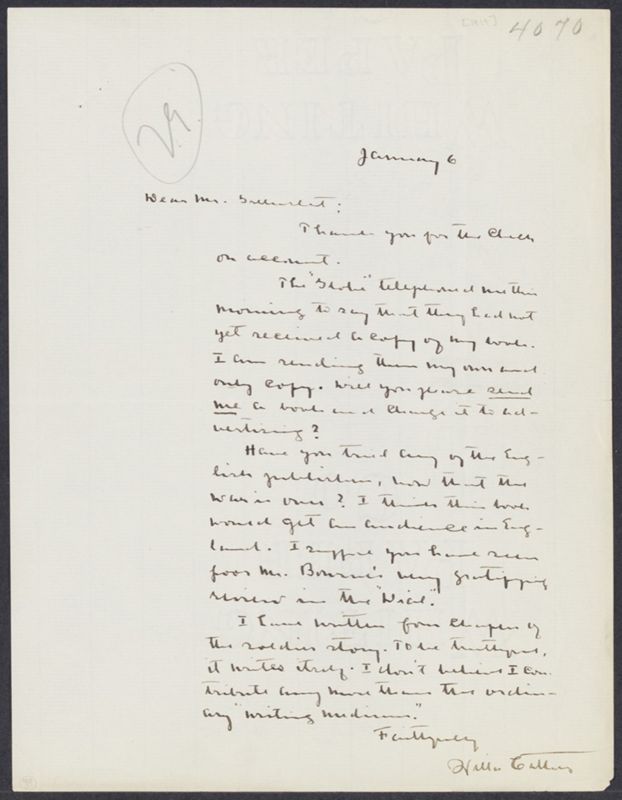 4070
January 6
Dear Mr. Greenslet:
Thank you for the check
on account.
The "Globe" telephoned me this
morning to say that they had not
yet received a copy of my book.
I am sending them my own and
only copy. Will you please send
me a book and charge it to ad-
vertising?
Have you tried any of the Eng-
lish publishers, now that the
war is over? I think this book
would get an audience in Eng-
land. I suppose you have seen
poor Mr. Bourne's very gratifying
review in the "Dial".
I have written four chapters of
the soldier story. To be truthful,
it writes itself. I don't believe I con-
tribute any more than the ordin-
ary "writing medium."
Faithfully
Willa Cather